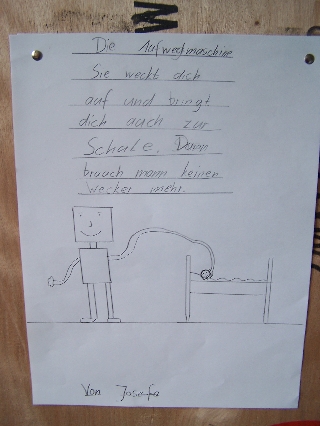 Die Aufweckmaschine
Sie weckt dich
auf und bringt
dich auch zur
Schule. Dann
brauch mann keinen
Wecker mehr.
Von Josefa